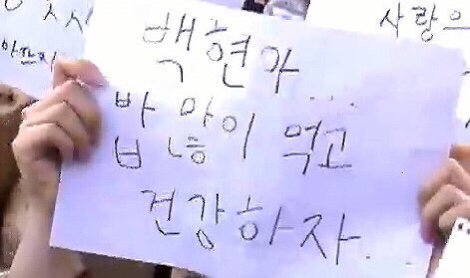 사랑으
백현아...
밥 많이 먹고
건강하자...